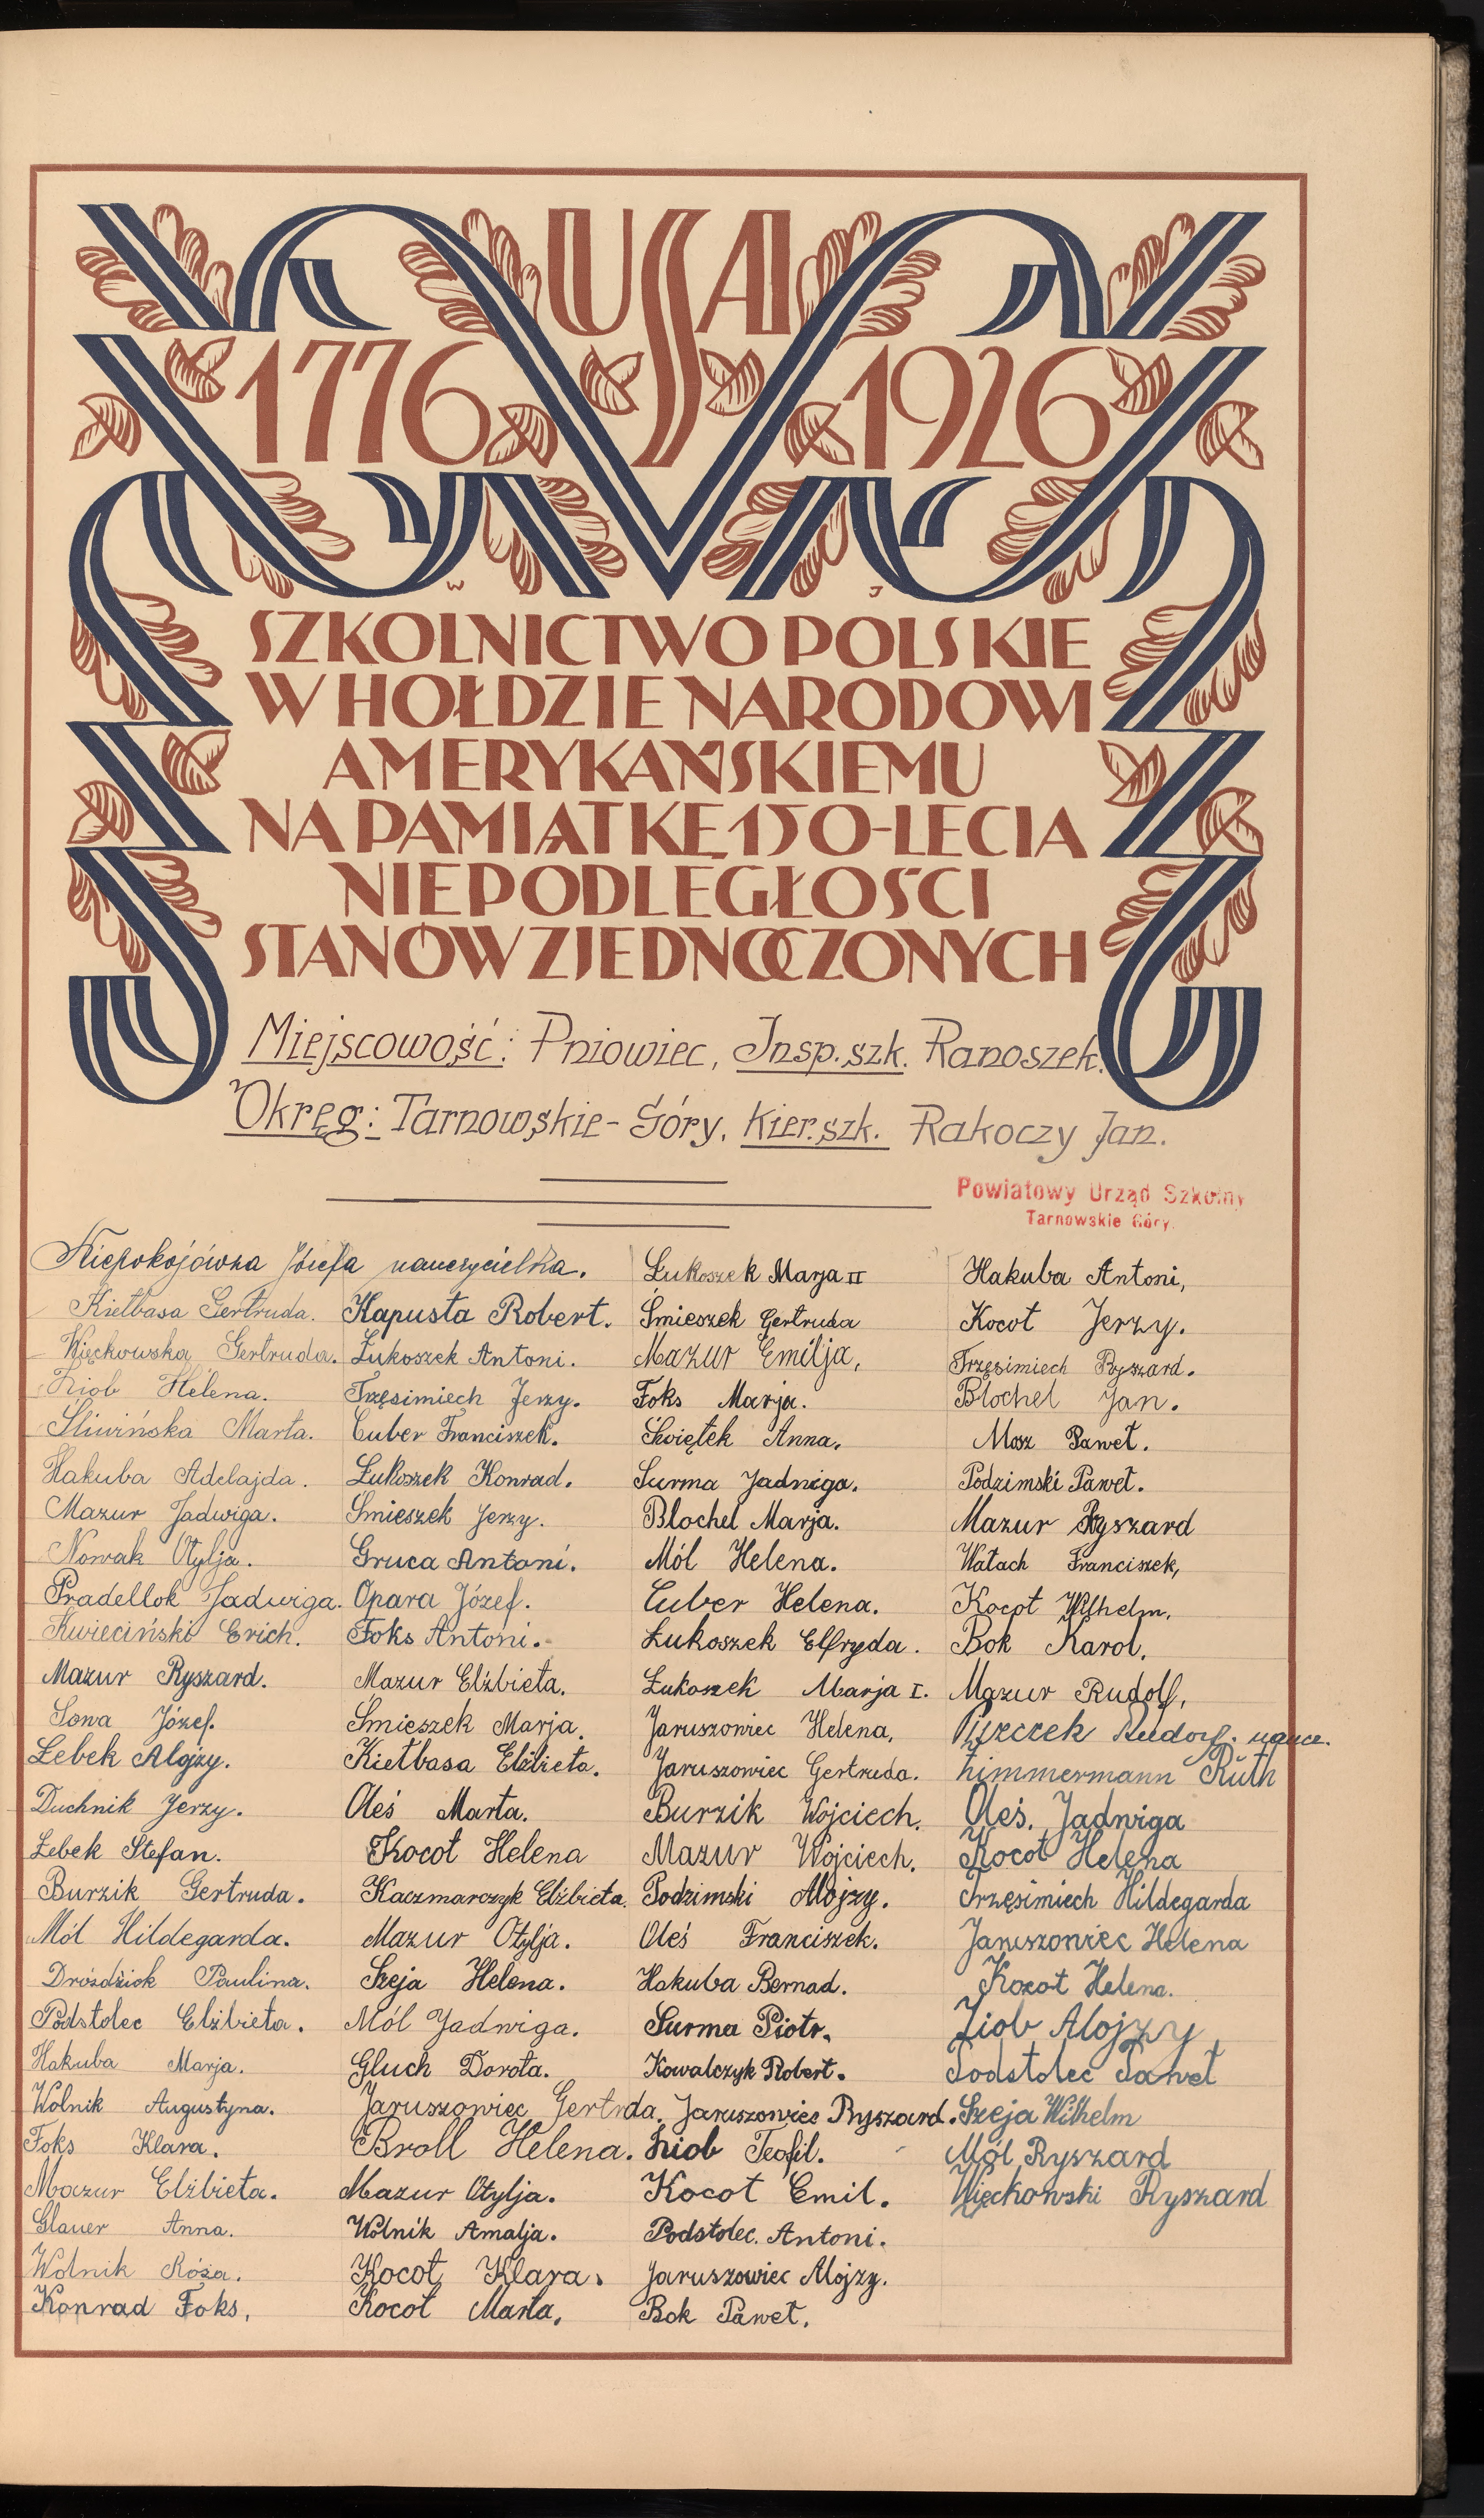 USA
1776 1926
W J
SZKOLNICTWO POLSKIE
W HOŁDZIE NARODOWI
AMERYKAŃSKIEMU
NA PAMIĄTKĘ 150-LECIA
NIEPODLEGŁOŚCI
STANÓW ZJEDNOCZONYCH
Miejscowość: Pniowiec, Insp. szk. Ranoszek.
Okręg: Tarnowskie-Góry, Kier. szk. Rakoczy Jan.
Powiatowy Urząd Szkolny
Tarnowskie Góry.
Niepokojówna Józefa nauczycielka.
Kiełbasa Gertruda.
Więckowska Gertruda.
Ziob Helena.
Śliwińska Marta.
Hakuba Adelajda.
Mazur Jadwiga.
Nowak Otylja.
Pradellok Jadwiga.
Kwieciński Erich.
Mazur Ryszard.
Sowa Józef.
Lebek Alojzy.
Duchnik Jerzy.
Lebek Stefan.
Burzik Gertruda.
Mól Hildegarda.
Dróżdżiok Paulina.
Podstolec Elżbieta.
Hakuba Marja.
Wolnik Augustyna.
Foks Klara.
Mazur Elżbieta.
Glauer Anna.
Wolnik Róża.
Konrad Foks,
Kapusta Robert.
Łukoszek Antoni.
Trzęsimiech Jerzy.
Cuber Franciszek.
Łukoszek Konrad.
Śmieszek Jerzy.
Gruca Antoni.
Opara Józef.
Foks Antoni.
Mazur Elżbieta.
Śmieszek Marja.
Kiełbasa Elżbieta.
Oleś Marta.
Kocot Helena
Kaczmarczyk Elżbieta.
Mazur Otylja.
Szeja Helena.
Mól Jadwiga.
Gluch Dorota.
Jaruszowiec Gertrda.
Broll Helena.
Mazur Otylja.
Wolnik Amalja.
Kocot Klara.
Kocot Marta,
Łukoszek Marja II
Śmieszek Gertruda
Mazur Emilja,
Foks Marja.
Świętek Anna.
Surma Jadwiga.
Blochel Marja.
Mól Helena.
Cuber Helena.
Łukoszek Elfryda.
Łukoszek Marja I.
Jaruszowiec Helena,
Jaruszowiec Gertruda.
Burzik Wojciech.
Mazur Wojciech.
Podzimski Alojzy.
Oleś Franciszek.
Hakuba Bernad.
Surma Piotr.
Kowalczyk Robert.
Jaruszowiec Ryszard.
Ziob Teofil.
Kocot Emil.
Podstolec Antoni.
Jaruszowiec Alojzy.
Bok Paweł.
Hakuba Antoni,
Kocot Jerzy.
Trzęsimiech Ryszard.
Blochel Jan.
Mosz Paweł.
Podzimski Paweł.
Mazur Ryszard
Wałach Franciszek,
Kocot Wilhelm.
Bok Karol.
Mazur Rudolf,
Rudolf naucz.
Zimmermann Ruth
Oleś Jadwiga
Kocot Helena
Trzęsimiech Hildegarda
Jaruszowiec Helena
Kocot Helena.
Ziob Alojzy,
Podstolec Paweł
Szeja Wilhelm
Mól Ryszard
Więckowski Ryszard